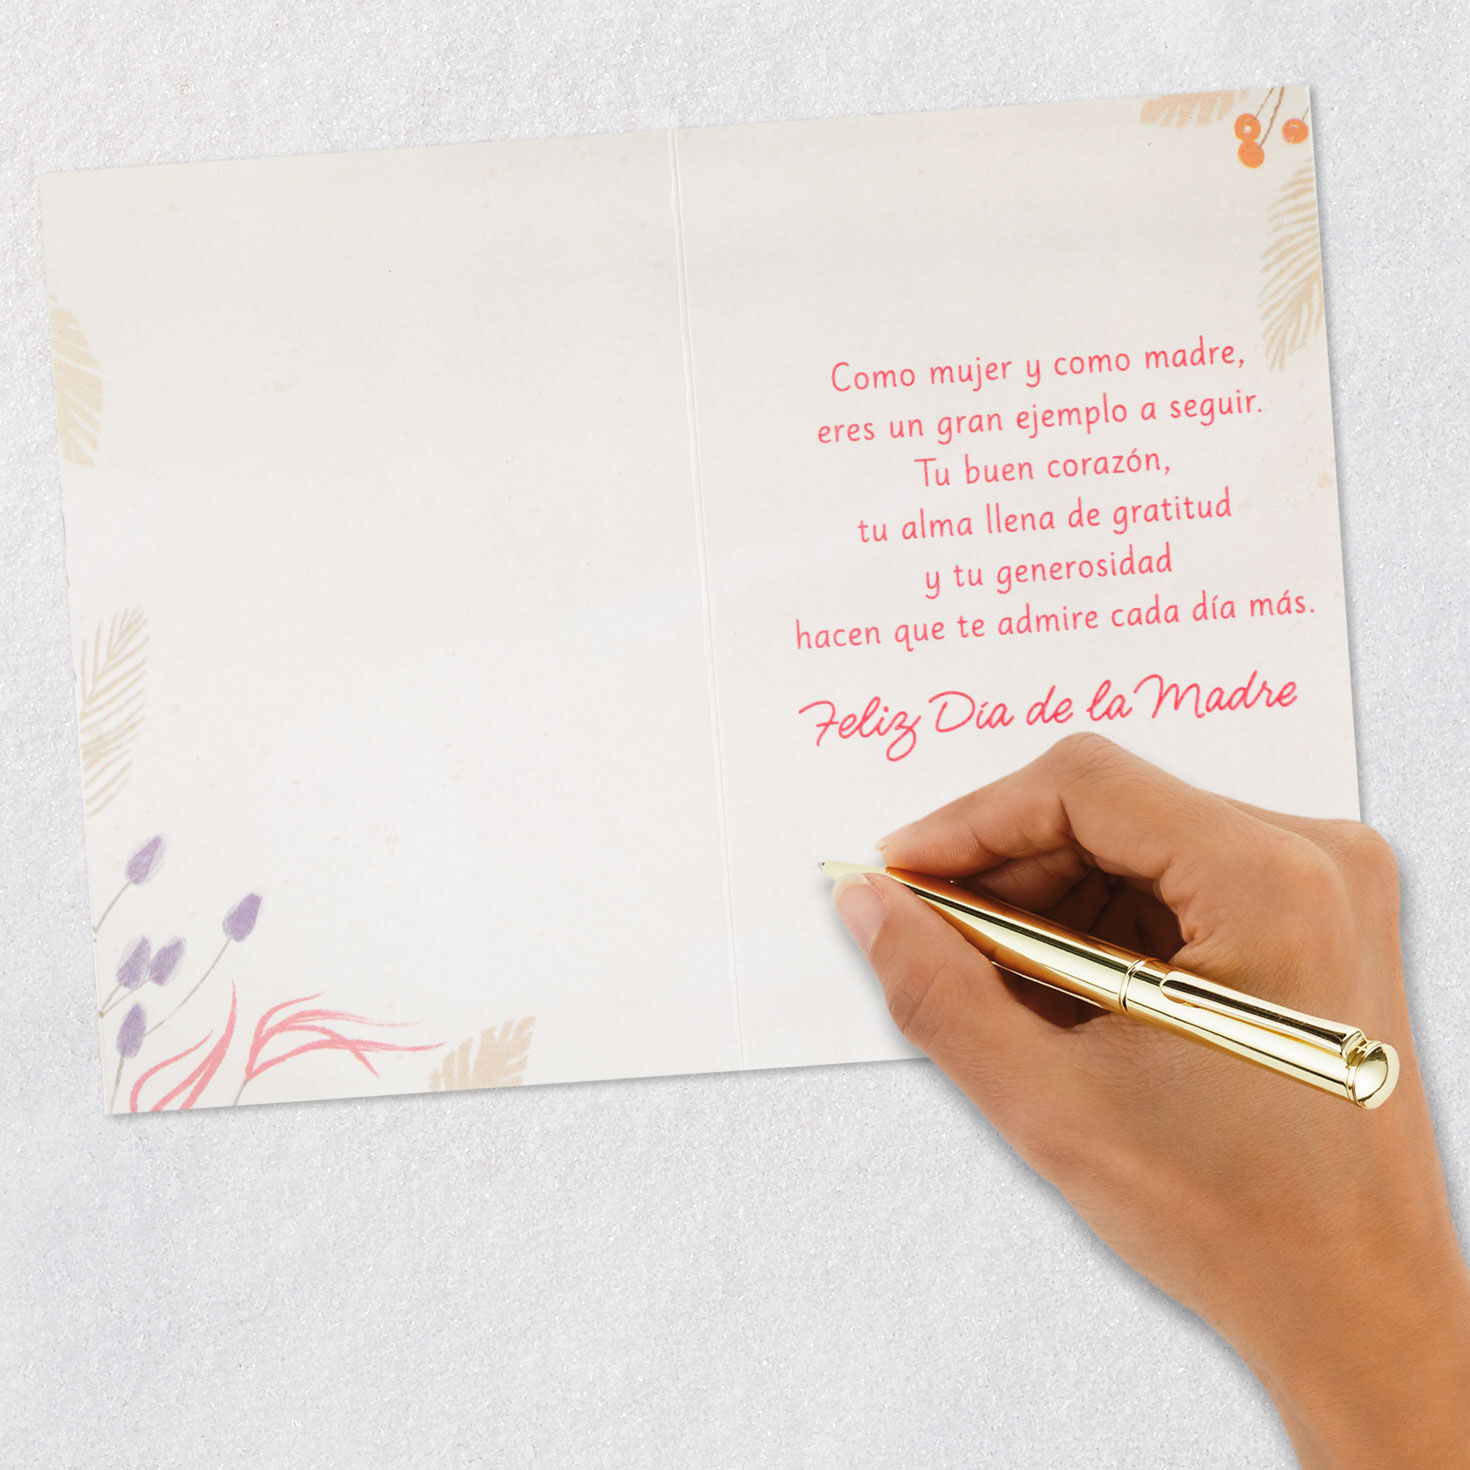 Como mujer y como madre,
eres un gran ejemplo a seguir.
Tu buen corazón,
tu alma llena de gratitud
y tu generosidad
hacen que te admire cada día más.
Feliz Día de la Madre